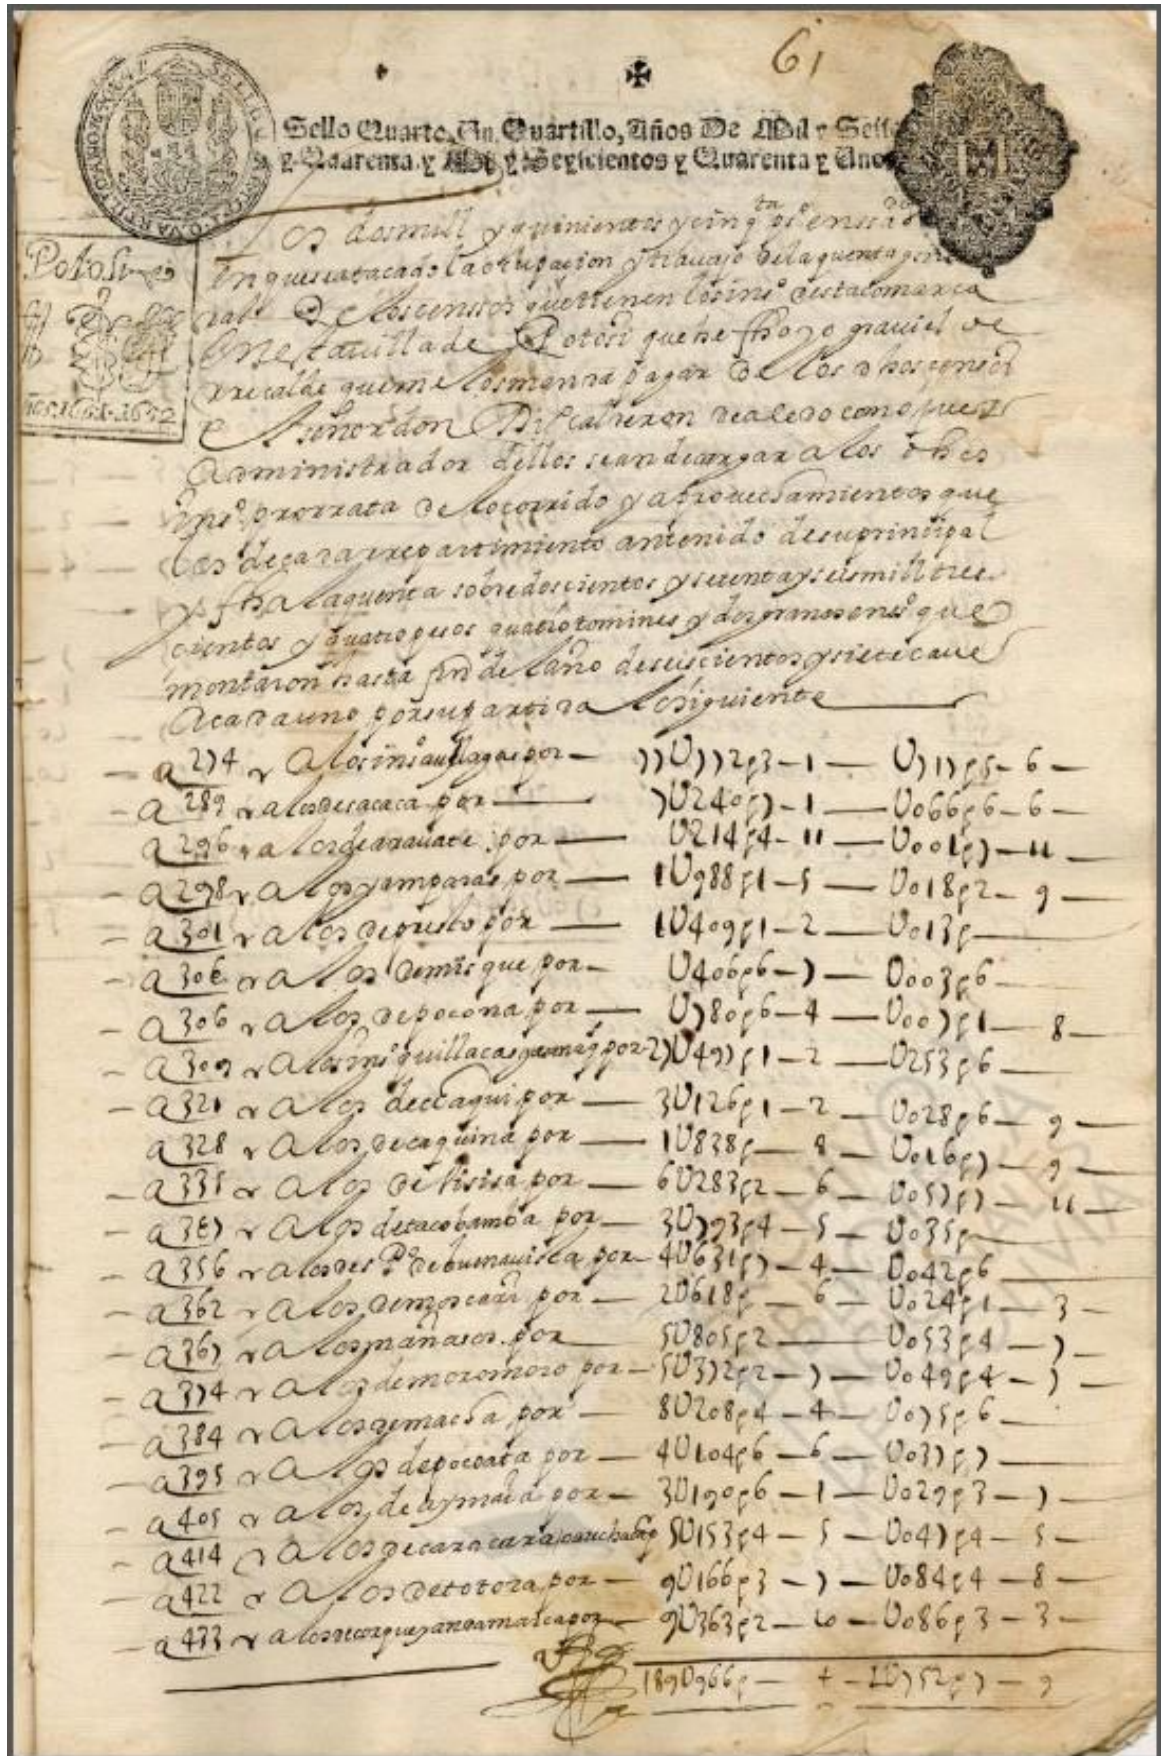 61
Sello Quarto, Un Quartillo, Años De Mil y Seis
y Quarenta y y Seyscientos y Quarenta y Uno
Los dos mill y quinientos y cinqta ps ensaos
en que se a tacado la ocupacion y trauajo de la quenta gene
ral De los censsos que tienen los inso desta comarca
En esta uilla de Potosi que he fho yo grauiel de
rrecalde que me los manda pagar De los dhos censos
el señor don Phil calderon como juez
administrador dellos se an de cargar a los dhos
inso prorrata de lo corrido y aprouechamientos que
les deçara rrepartimiento antenido de su prinçipal
y fha la quenta sobre doscientos y setenta y seis mill tres
cientos y quatro pesos quatro tomines y dos granos enso que
montaron hasta fin del año de seiscientos y siete caue
A cada uno por su partida lo siguiente
Potosi
años 1641-1642
a 274 A los inso aullagas por — 77U772p3 — 1 — U717p5 — 6 —
a 289 a los de cacaca por — 7U240p7 — 1 — U066p6 — 6 —
a 296 a los de arauate por — U214p4 — 11 — U001p7 — 11 —
a 298 a los yamparas por — 1U988p1 — 5 — U018p2 — 9 —
a 301 A los de presto por — 1U409p1 — 2 — U013p —
a 306 A los de misque por — U406p6 — 7 — U003p6 —
a 306 A los de pocona por — U780p6 — 4 — U007p1 — 8 —
a 309 A los inso quillacas por 27U497p1 — 2 — U253p6 —
a 321 A los de chaqui por — 3U126p1 — 2 — U028p6 — 9 —
a 328 A los de caquina por — 1U838p — 8 — U016p7 — 9 —
a 335 A los de tisisa por — 6U283p2 — 6 — U057p7 — 11 —
a 347 A los de tacobamba por — 3U793p4 — 5 — U035p —
a 356 A los de s Po de buenauista por — 4U631p7 — 4 — U042p6 —
a 362 A los de moscari por — 2U618p — 6 — U024p1 — 3 —
a 367 A los mañasos por — 5U805p2 — U053p4 — 7 —
a 374 A los de moromoro por — 5U372p2 — 7 — U049p4 — 7 —
a 384 A los de macha por — 8U208p4 — 4 — U075p6 —
a 395 A los de pocoata por — 4U104p6 — 6 — U037p7 —
a 405 A los de aymaia por — 3U190p6 — 1 — U029p3 — 7 —
a 414 A los de caracara 5U153p4 — 5 — U047p4 — 5 —
a 422 A los de totora por — 9U166p3 — 7 — U084p4 — 8 —
a 433 A los de corque y andamarca por — 9U363p2 — 10 — U086p3 — 3 —
189U966p — 4 — 1U752p7 — 9